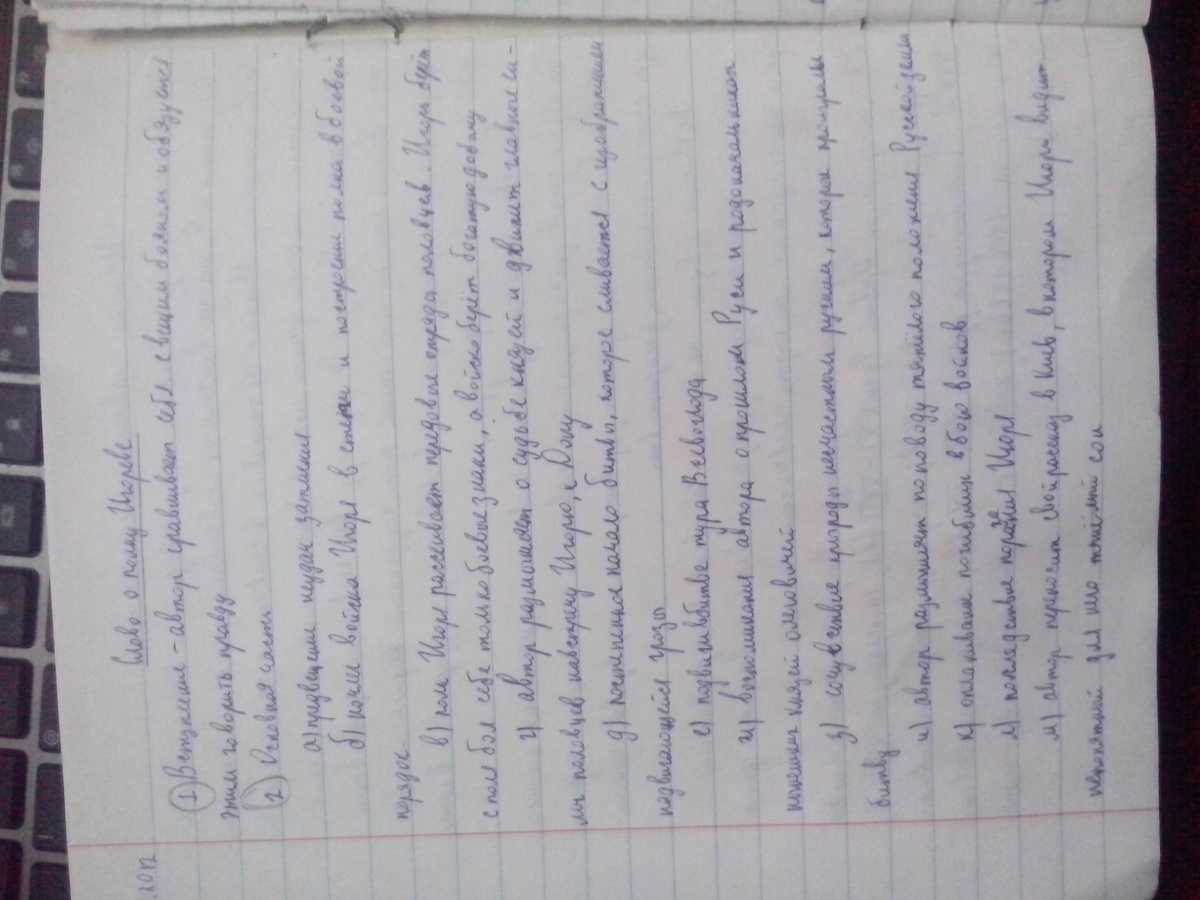 2012
Слово о полку Игореве
1 Вступление - автор сравнивает себя с вещим Бояном и обязуется
этим говорить правду
2 Основная часть
а) предвещение неудач затмения
б) поход войска Игоря в степи и построение полка в боевой
порядок
в) полк Игоря рассеивает передовые отряды половцев. Игорь берёт
с поля боя себе только боевые знаки, а войско берёт богатую добычу
г) автор размышляет о судьбе князей и движит главные си-
лы половцев навстречу Игорю, к Дону
д) постепенное начало битвы, которое сливается с изображением
надвигающейся грозы
е) подвиги в битве тура Всеволода
ж) воспоминания автора о прошлом Руси и родоначальниках
князей олеговичей
з) сочувствие природы несчастным русским, которые проиграли
битву
и) автор размышляет по поводу тяжёлого положения Русской земли
к) оплакивание погибших в бою войсков
л) последствие поражения за Игоря
м) автор переносит свой рассказ в Киев, в котором Игорь видит
непонятный для него тяжёлый сон